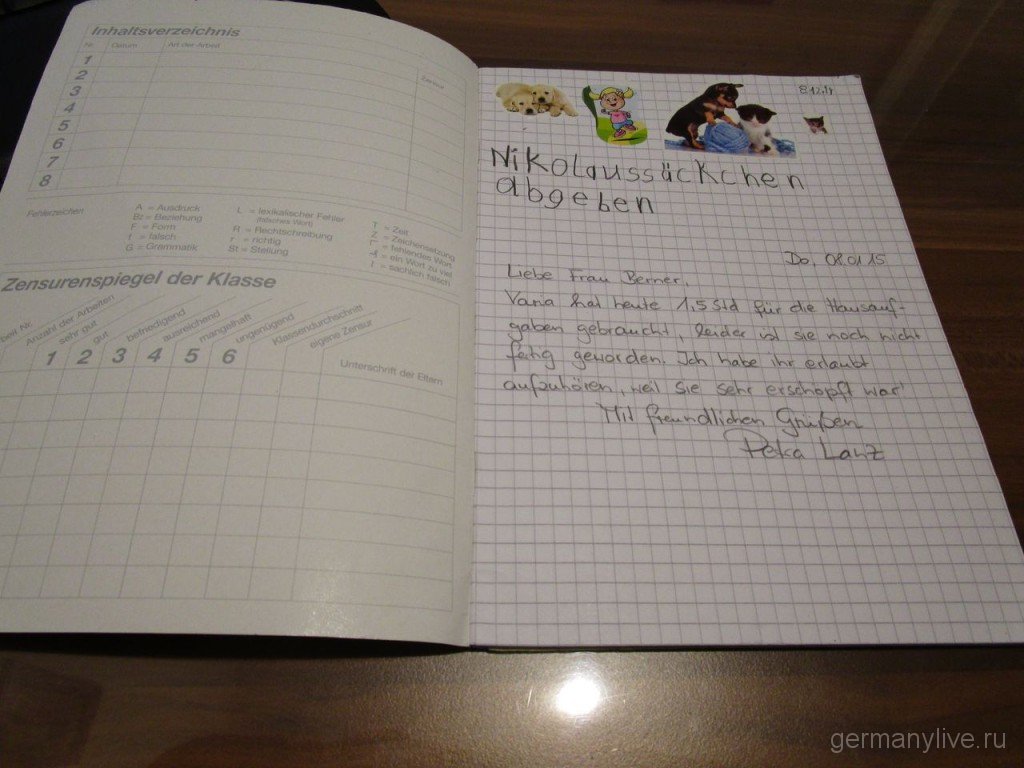 Inhaltsverzeichnis
Nr. Datum Art der Arbeit Zensur
1
2
3
4
5
6
7
8
Fehlerzeichen
A = Ausdruck
Bz = Beziehung
F = Form
f = falsch
G = Grammatik
L = lexikalischer Fehler
(falsches Wort)
R = Rechtschreibung
r = richtig
St = Stellung
T = Zeit
Z = Zeichensetzung
Γ = fehlendes Wort
= ein Wort zu viel
= sachlich falsch
Zensurenspiegel der Klasse
Nr.
Anzahl der Arbeiten
sehr gut
gut
befriedigend
ausreichend
mangelhaft
ungenügend
Klassendurchschnitt
eigene Zensur
1 2 3 4 5 6
Unterschrift der Eltern
Nikolaussäckchen
abgeben
Do, 08.01.15
Liebe Frau Berner,
Varia hat heute 1,5 Std für die Hausauf-
gaben gebraucht, leider ist sie noch nicht
fertig geworden. Ich habe ihr erlaubt
aufzuhören, weil sie sehr erschöpft war!
Mit freundlichen Grüßen
Lanz
germanylive.ru